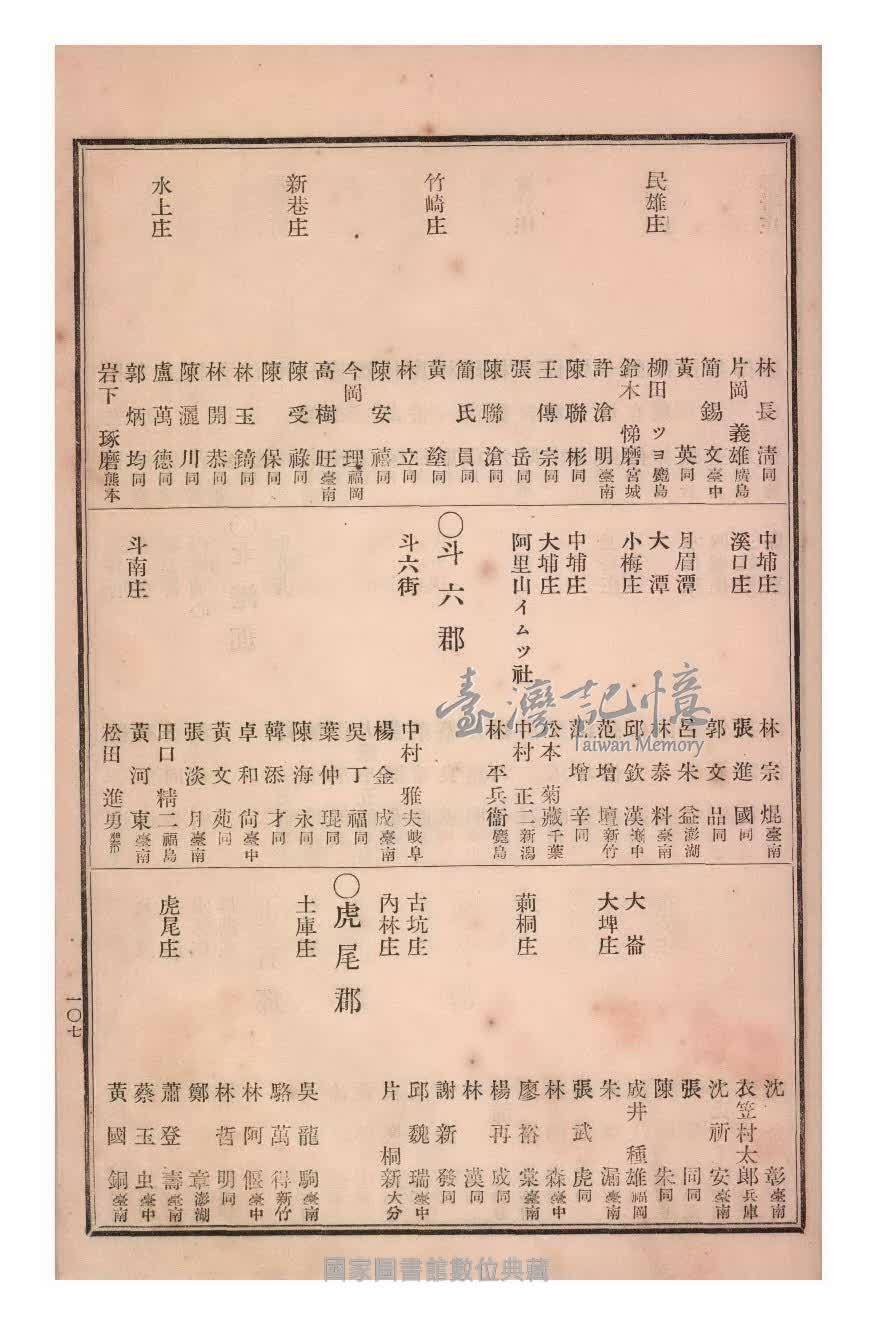 林長淸同
片岡義雄廣島
民雄庄
簡錫文臺中
黃英同
柳田ツヨ鹿島
鈴木悌磨宮城
許滄明臺南
陳聯彬同
王傳宗同
張岳同
陳聯滄同
簡氏員同
竹崎庄
黃塗同
林立同
陳安禧同
今岡理福岡
高樹旺臺南
新巷庄
陳受祿同
陳保同
林玉錡同
林開恭同
陳灑川同
水上庄
盧萬德同
郭炳均同
岩下琢磨熊本
中埔庄
林宗焜臺南
溪口庄
張進國同
郭文品同
月眉潭
呂朱益澎湖
大潭
林泰料臺南
小梅庄
邱欽漢臺中
范增壇新竹
中埔庄
范增辛同
大埔庄
松本菊藏千葉
阿里山イムツ社
中村正二新潟
林平兵衞鹿島
〇斗六郡
斗六街
中村雅夫岐阜
楊金成臺南
吳丁福同
葉仲琨同
陳海永同
韓添才同
卓和尙臺中
黃文苑同
張淡月臺南
田口精二福島
斗南庄
黃河東臺南
松田進勇
沈彰臺南
衣笠村太郎兵庫
沈祈安臺南
張同同
陳朱同
大崙
成井種雄福岡
大埤庄
朱漏臺南
張武虎同
林森臺中
莿桐庄
廖裕棠臺南
楊再成同
林漢同
謝新發同
古坑庄
邱魏瑞臺中
內林庄
片桐新大分
〇虎尾郡
土庫庄
吳龍駒臺南
駱萬得新竹
林阿偃臺中
林哲明同
鄭章澎湖
虎尾庄
蕭登壽臺南
蔡玉虫臺中
黃國銅臺南
一〇七
臺灣記憶
Taiwan Memory
國家圖書館數位典藏